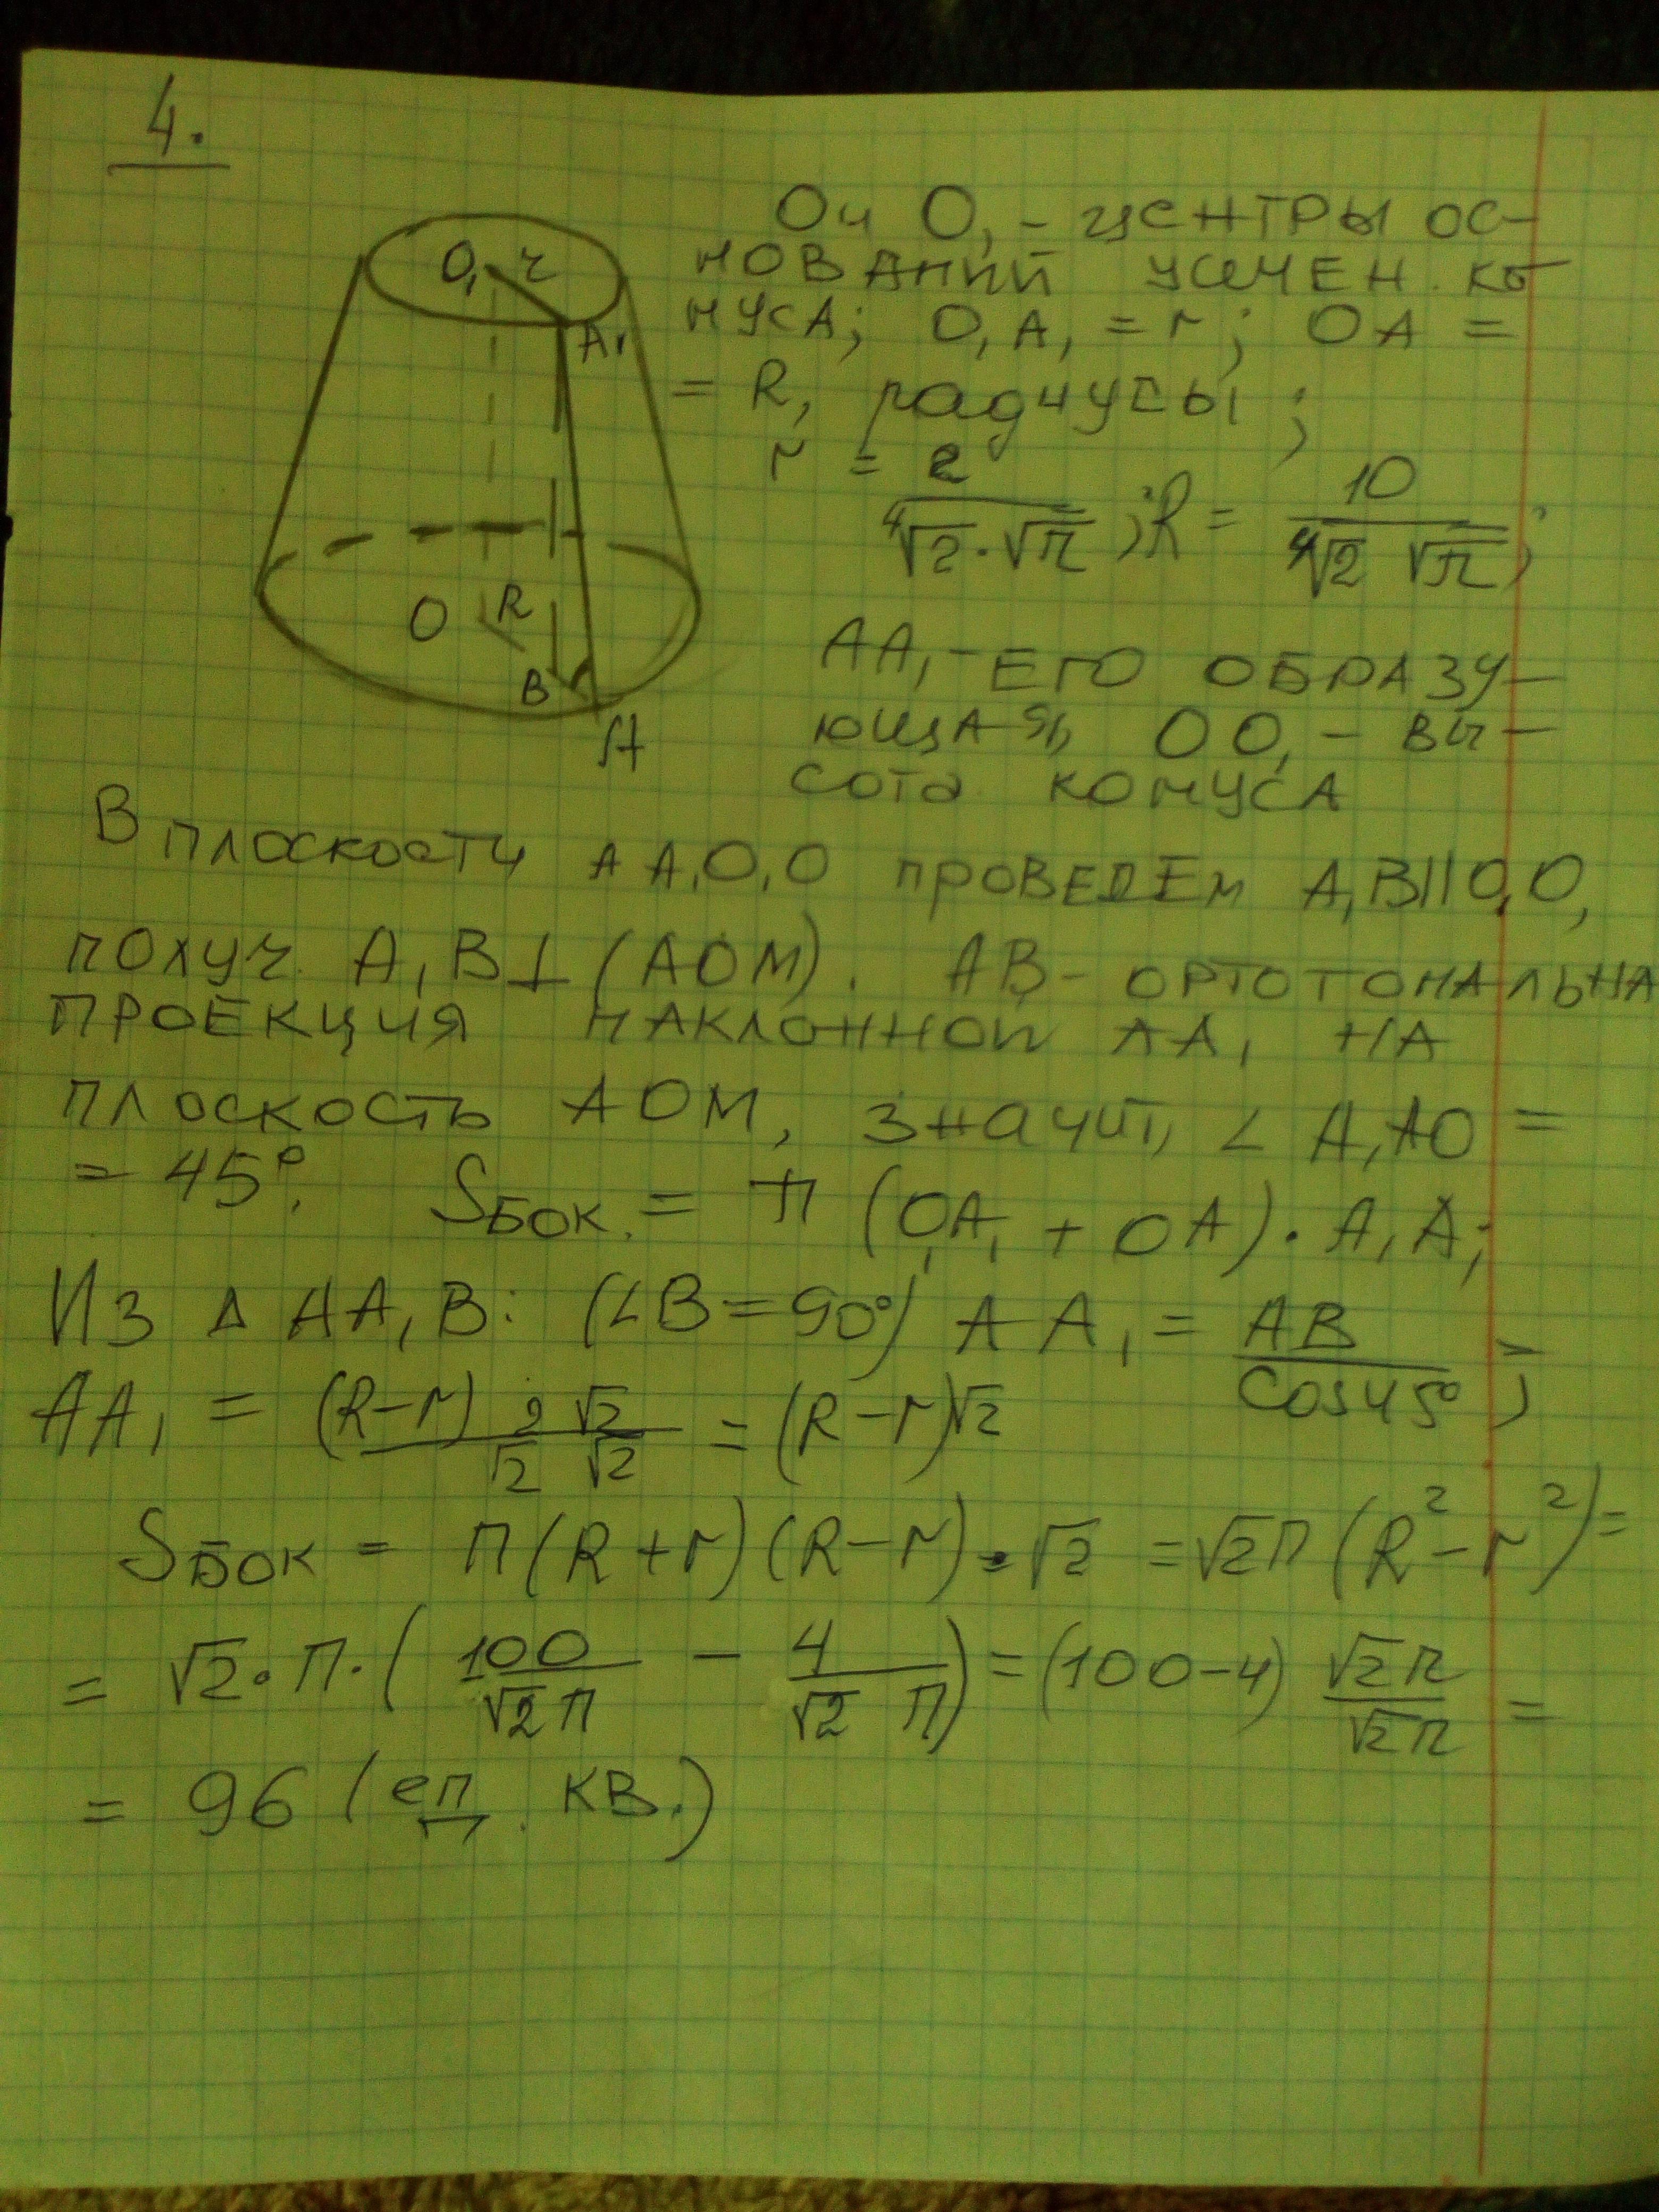 4.
O₁ r
A₁
O R
B
A
O и O₁ - центры ос-
нований усечен. ко
нуса; O₁A₁ = r; OA =
= R, радиусы;
r = 2/(⁴√2·√π); R = 10/(⁴√2 √π);
AA₁ - его образу-
ющая, OO₁ - вы-
сота конуса
В плоскости AA₁O₁O проведем A₁B||O₁O,
получ. A₁B⊥(AOM). AB - ортогональна
проекция наклонной AA₁ на
плоскость AOM, значит, ∠A₁AO =
= 45°. Sбок. = π (O₁A₁ + OA)·A₁A;
Из Δ AA₁B: (∠B=90°) AA₁ = AB/cos45°;
AA₁ = (R-r) 2 √2/(√2 √2) = (R-r)√2
Sбок = π(R+r)(R-r)·√2 = √2π(R²-r²)=
= √2·π·(100/(√2π) - 4/(√2 π)) = (100-4) √2π/(√2π) =
= 96 (ед. кв.)